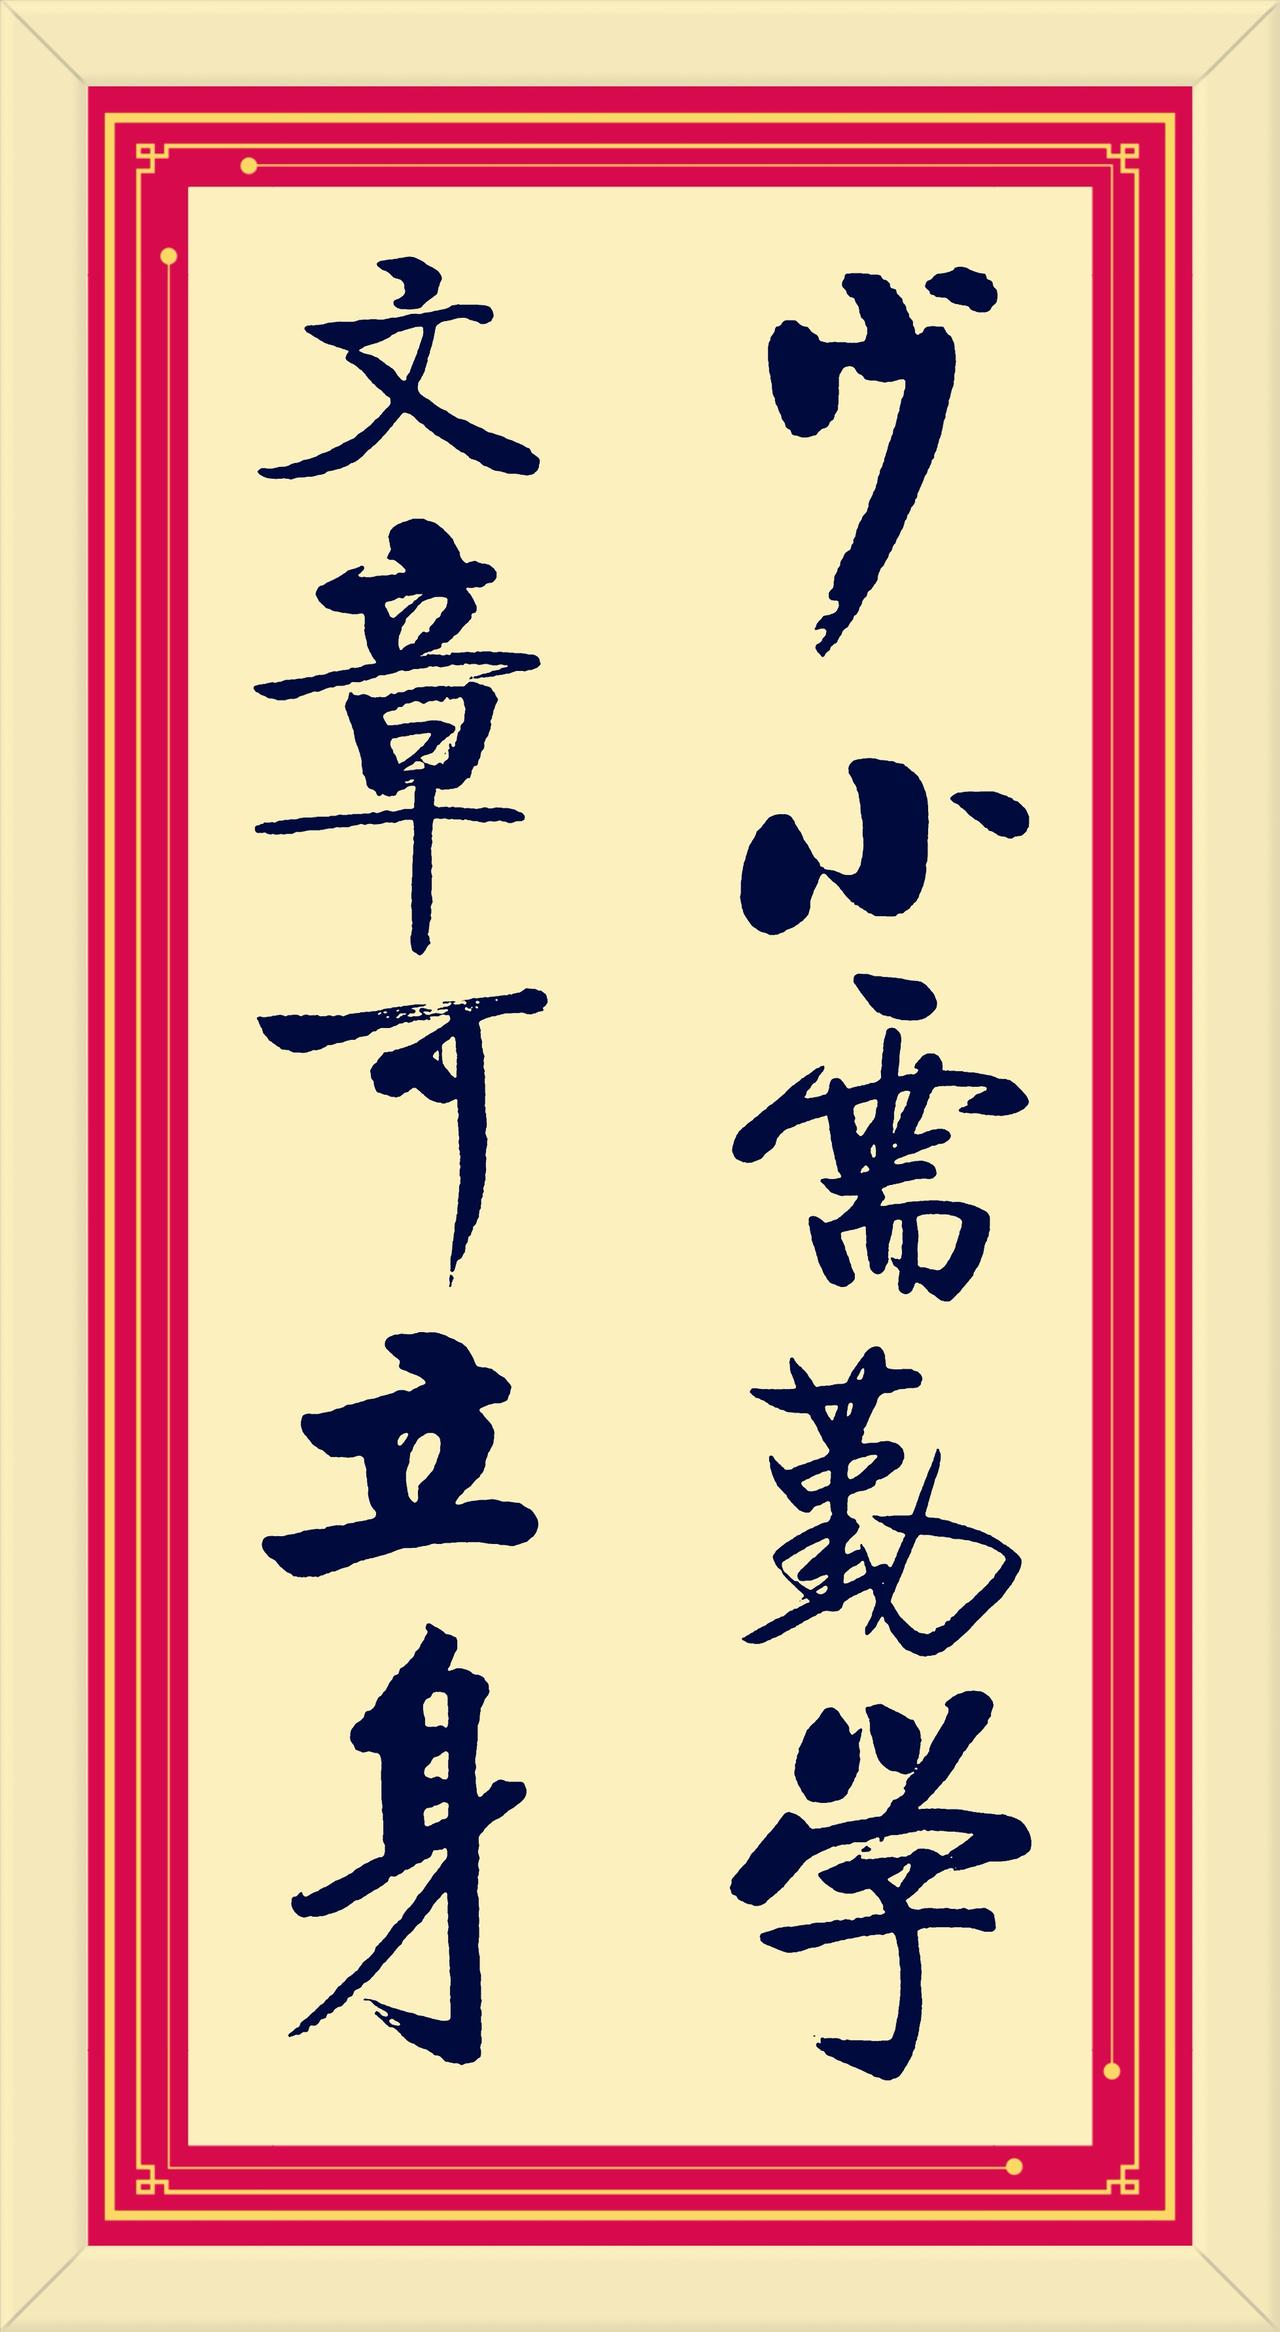 少小需勤学
文章可立身